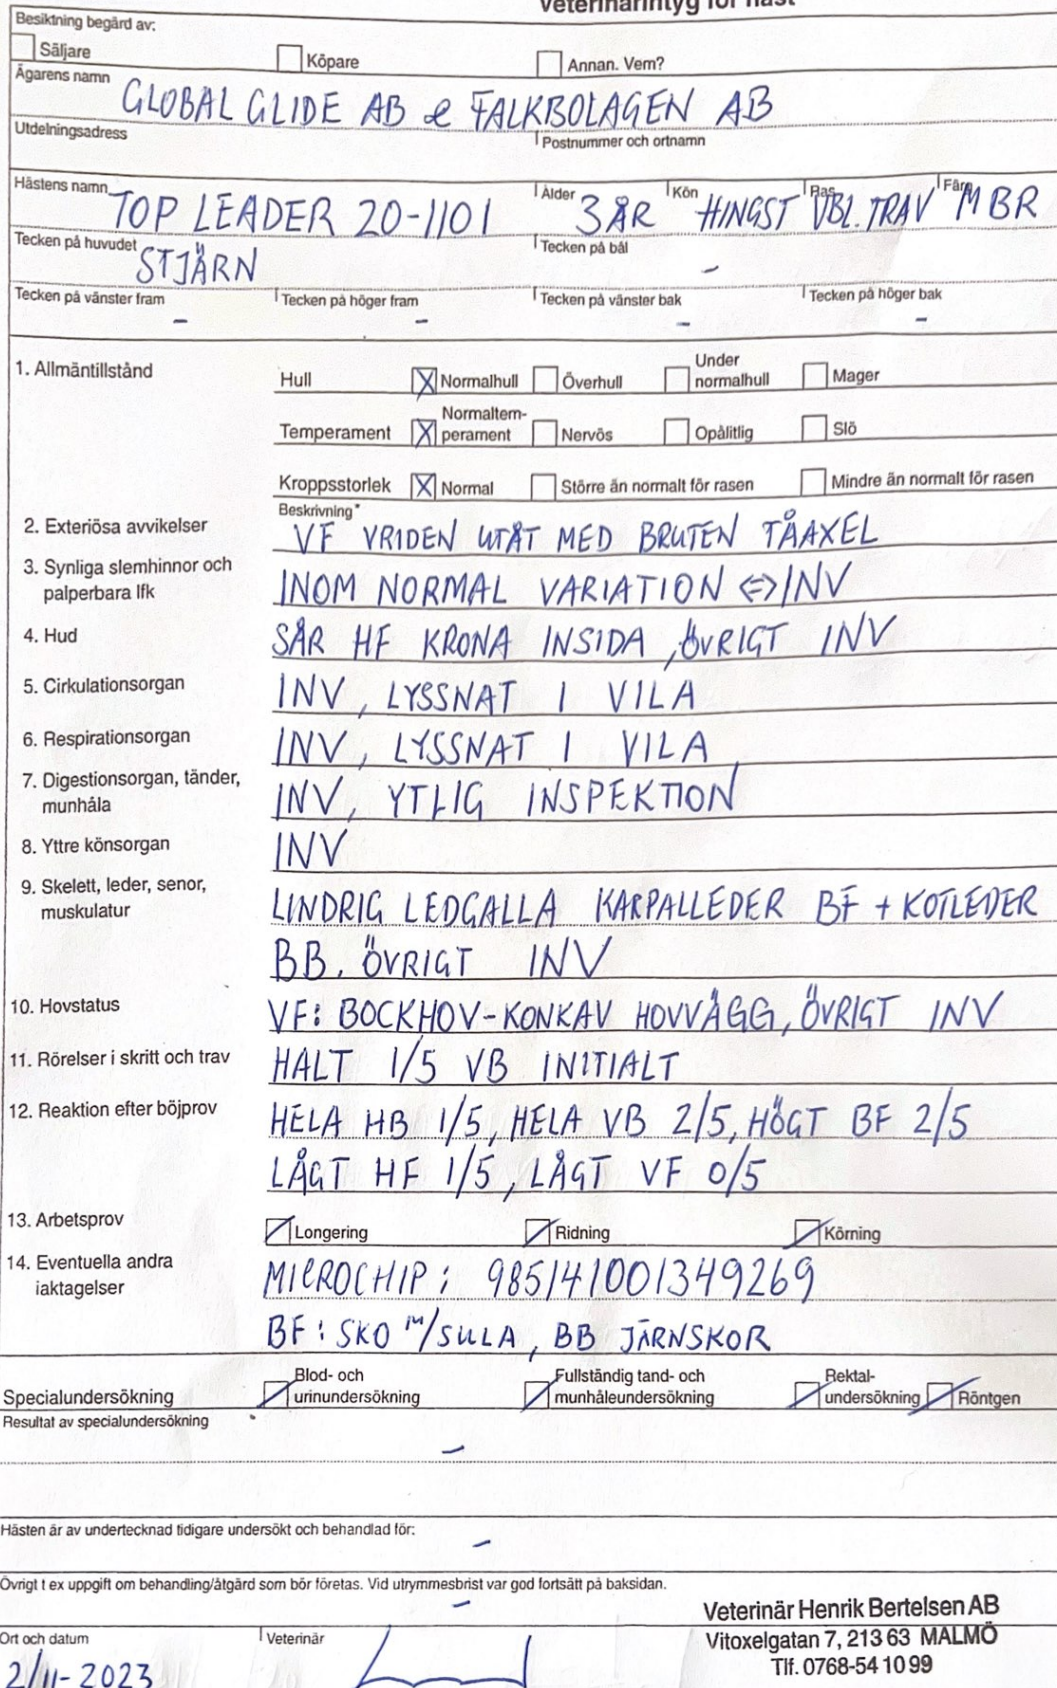 Veterinärintyg för häst
Besiktning begärd av:
Säljare Köpare Annan. Vem?
Ägarens namn GLOBAL GLIDE AB & FALKBOLAGEN AB
Utdelningsadress Postnummer och ortnamn
Hästens namn TOP LEADER 20-1101 Ålder 3 ÅR Kön HINGST Ras VBL. TRAV Färg MBR
Tecken på huvudet STJÄRN Tecken på bål -
Tecken på vänster fram - Tecken på höger fram - Tecken på vänster bak - Tecken på höger bak -
1. Allmäntillstånd Hull X Normalhull Överhull Under normalhull Mager
Temperament X Normaltemperament Nervös Opålitlig Slö
Kroppsstorlek X Normal Större än normalt för rasen Mindre än normalt för rasen
Beskrivning*
2. Exteriösa avvikelser VF VRIDEN UTÅT MED BRUTEN TÅAXEL
3. Synliga slemhinnor och palperbara lfk INOM NORMAL VARIATION <=> INV
4. Hud SÅR HF KRONA INSIDA, ÖVRIGT INV
5. Cirkulationsorgan INV, LYSSNAT I VILA
6. Respirationsorgan INV, LYSSNAT I VILA
7. Digestionsorgan, tänder, munhåla INV, YTLIG INSPEKTION
8. Yttre könsorgan INV
9. Skelett, leder, senor, muskulatur LINDRIG LEDGALLA KARPALLEDER BF + KOTLEDER
BB. ÖVRIGT INV
10. Hovstatus VF: BOCKHOV-KONKAV HOVVÄGG, ÖVRIGT INV
11. Rörelser i skritt och trav HALT 1/5 VB INITIALT
12. Reaktion efter böjprov HELA HB 1/5, HELA VB 2/5, HÖGT BF 2/5
LÅGT HF 1/5, LÅGT VF 0/5
13. Arbetsprov Longering Ridning Körning
14. Eventuella andra iaktagelser MICROCHIP: 985141001349269
BF: SKO m/SULA, BB JÄRNSKOR
Specialundersökning Blod- och urinundersökning Fullständig tand- och munhåleundersökning Rektal-undersökning Röntgen
Resultat av specialundersökning
-
Hästen är av undertecknad tidigare undersökt och behandlad för:
-
Övrigt t ex uppgift om behandling/åtgärd som bör företas. Vid utrymmesbrist var god fortsätt på baksidan.
-
Veterinär Henrik Bertelsen AB
Vitoxelgatan 7, 213 63 MALMÖ
Tlf. 0768-54 10 99
Ort och datum Veterinär
2/11-2023